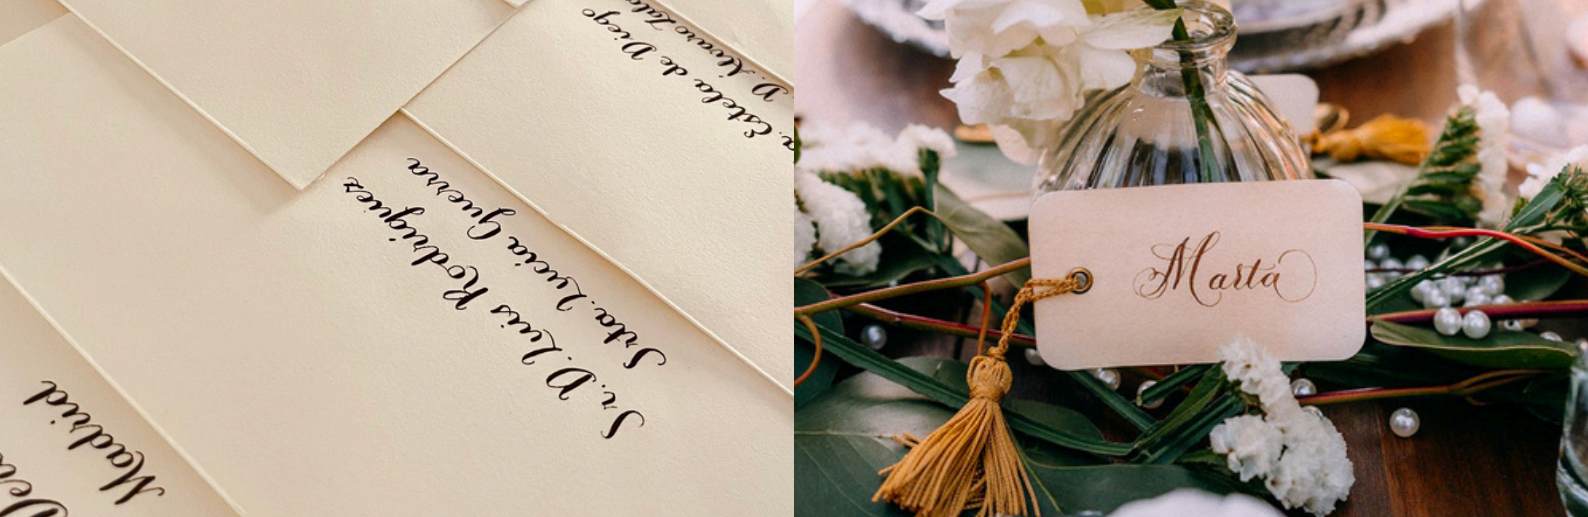 Sr. D. Luis Rodriguez
Srta. Lucia Guerra
Estela de Diego
D. Alvaro
Madrid
Marta